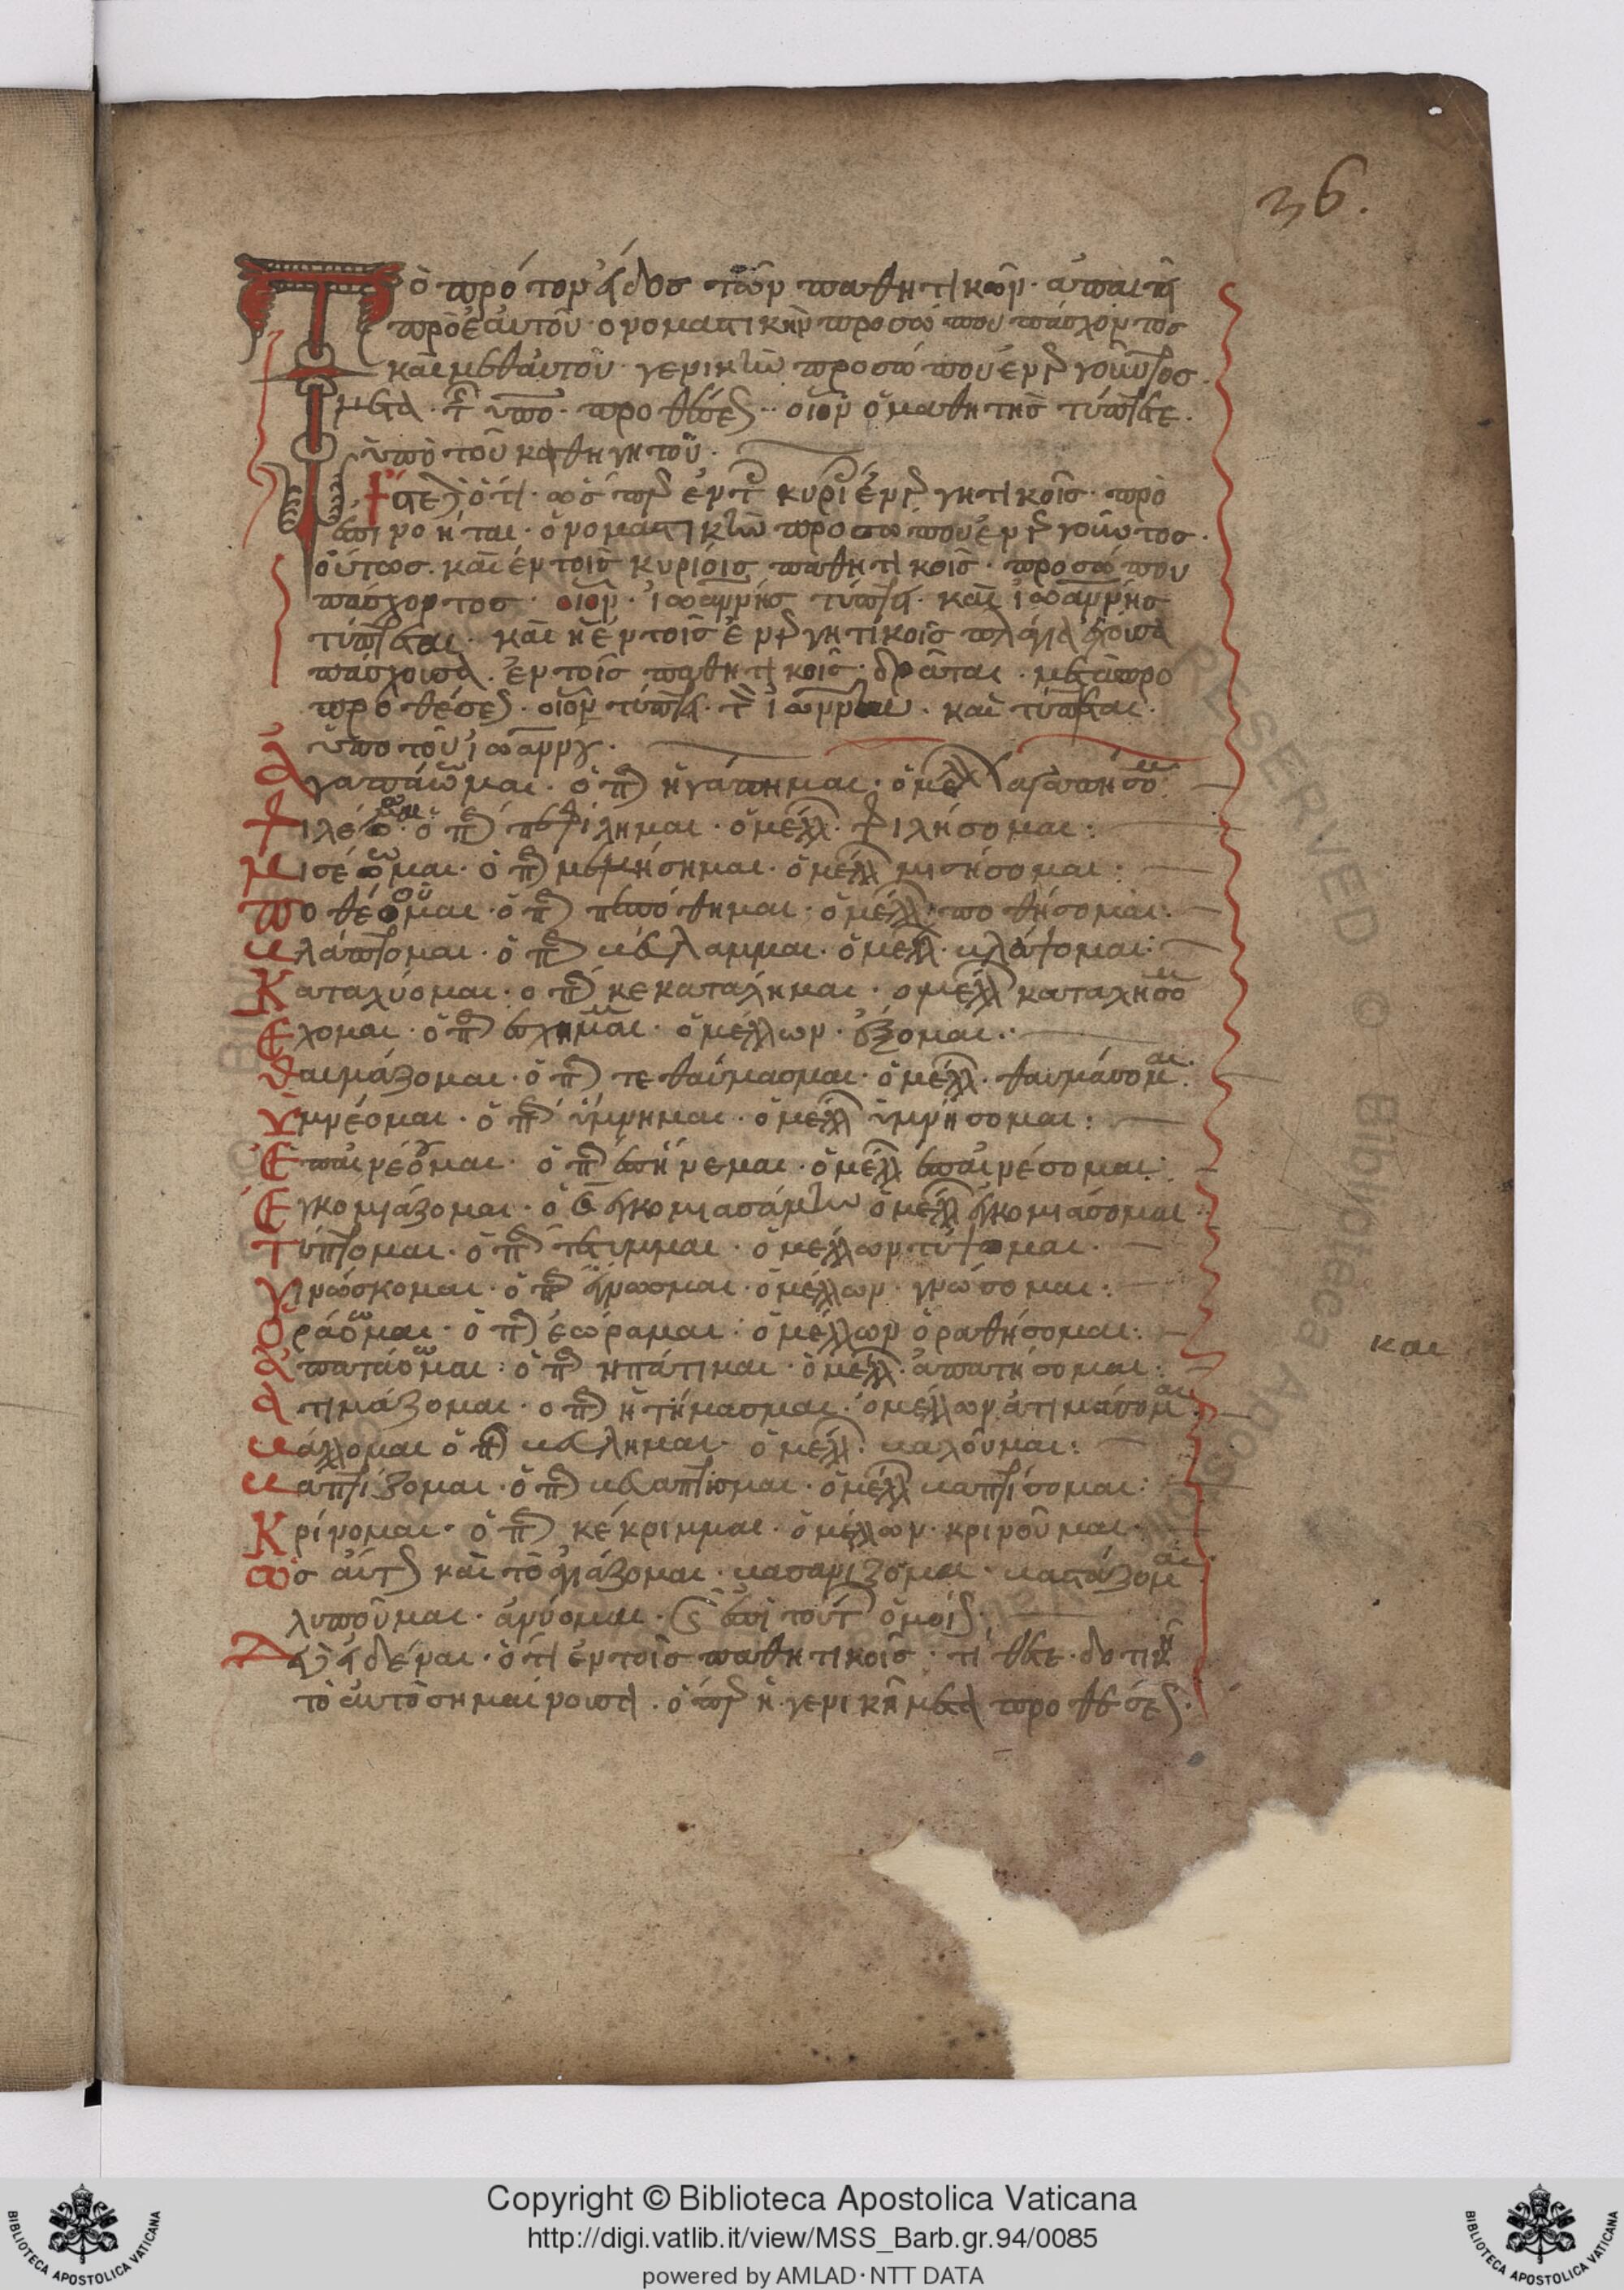 36.
Τὸ πρότον εἶδος τῶν παθητικῶν. ἀπαιτεῖ
πρὸ ἑαυτοῦ ὀνοματικὴν προσώπου πάσχοντος
καὶ μεθ' αὑτοῦ γενικὴν προσώπου ἐνεργοῦντος
μετὰ τῆς ὑπὸ προθέσεως. οἷον ὁ μαθητὴς τύπτεται
ὑπὸ τοῦ καθηγητοῦ.
ὅτι ὥσπερ ἐν τοῖς κυρίοις ἐνεργητικοῖς. πρὸ
ἐπινοῆται. ὀνοματικὴν προσώπου ἐνεργοῦντος.
οὕτως. καὶ ἐν τοῖς κυρίοις παθητικοῖς. προσώπου
πάσχοντος. οἷον. ἰωάννης τύπτει. καὶ ἰωάννης
τύπτεται. καὶ ἡ ἐν τοῖς ἐνεργητικοῖς πλάγια
πάσχουσα. ἐν τοῖς παθητικοῖς. δρᾶται. μετὰ προ
προθέσεως. οἷον τύπτει τὸν ἰωάννην. καὶ τύπτεται
ὑπὸ τοῦ ἰωάννου.
ἀγαπάῶμαι. ὁ πρ ἠγάπημαι. ὁ μέλλ ἀγαπήσο
φιλέο. ὁ πρ πεφίλημαι. ὁ μέλλ. φιλήσομαι:
μισέομαι. ὁ πρ μεμήσημαι. ὁ μέλλ μισήσομαι:
ποθέομαι. ὁ πρ πεπόθημαι. ὁ μέλλ. ποθήσομαι.
βλάπτομαι. ὁ πρ βέβλαμμαι. ὁ μέλλ. βλάψομαι:
Καταχύομαι. ο πρ κεκατάχημαι. ο μέλλ καταχήσο
Ἔχομαι. ὁ πρ ἔσχημαι. ὁ μέλλων. ἕξομαι.
θαυμάζομαι. ὁ πρ τεθαύμασμαι. ὁ μέλλ. θαυμάσομαι.
ὑμνέομαι. ὁ πρ ὕμνημαι. ὁ μέλλ ὑμνήσομαι:
Ἐπαινέομαι. ὁ πρ ἐπήνεμαι. ὁ μέλλ ἐπαινέσομαι:
Ἐγκομιάζομαι. ὁ ἐγκομιασάμην ὁ μέλλ ἐγκομιάσομαι
Τύπτομαι. ὁ πρ τέτυμμαι. ὁ μέλλων τύψομαι.
γινώσκομαι. ὁ πρ ἔγνωσμαι. ὁ μέλλων. γνώσομαι.
ὁράομαι. ὁ πρ ἑώραμαι. ὁ μέλλων ὁραθήσομαι.
ἀπατάομαι: ὁ πρ ηπάτιμαι. ὁ μέλλ. ἀπατήσομαι:
ἀτιμάζομαι. ο πρ ἠτήμασμαι. ὁ μέλλων ἀτιμάσομαι.
βάλλομαι ὁ πρ βέβλημαι. ὁ μέλλ. βαλοῦμαι:
βαπτίζομαι. ὁ πρ βεβάπτισμαι. ὁ μέλλ βαπτίσομαι:
Κρίνομαι. ὁ πρ κέκριμμαι. ὁ μέλλων. κρινοῦμαι.
ὡσαύτως καὶ τὸ ἁγιάζομαι. βασανίζομαι. βαστάζομαι
λυποῦμαι. ἀνύομαι. καὶ ἐπὶ τούτοις ὁμοίως.
Δεῖ εἰδέναι. ὅτι ἐν τοῖς παθητικοῖς. τίθεται δοτικὴ
τὸ αὐτὸ σημαίνουσα. ὅπερ ἡ γενικὴ μετὰ προθέσεως.
και
Copyright © Biblioteca Apostolica Vaticana
http://digi.vatlib.it/view/MSS_Barb.gr.94/0085
powered by AMLAD · NTT DATA
BIBLIOTECA APOSTOLICA VATICANA
BIBLIOTECA APOSTOLICA VATICANA